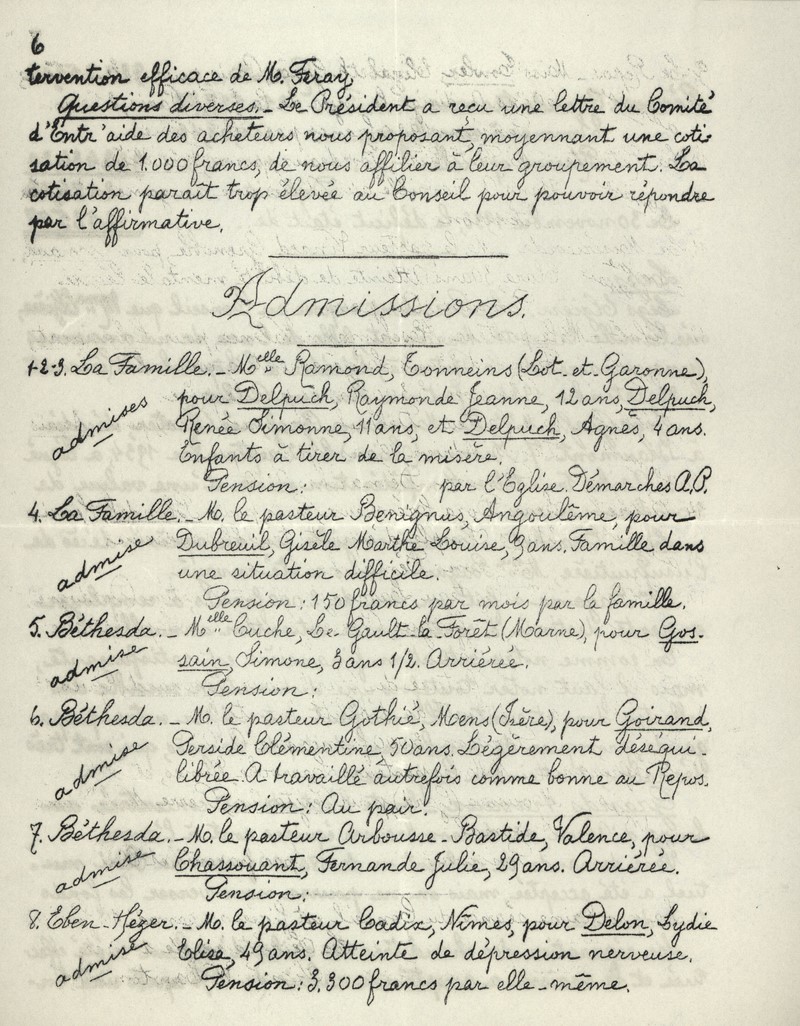 6
tervention efficace de M. Feray.
Questions diverses. - Le Président a reçu une lettre du Comité
d'Entr'aide des acheteurs nous proposant, moyennant une coti-
sation de 1.000 francs, de nous affilier à leur groupement. La
cotisation paraît trop élevée au Conseil pour pouvoir répondre
par l'affirmative.
Admissions.
1-2-3. La Famille. - Melle Ramond, Tonneins (Lot-et-Garonne),
pour Delpuch, Raymonde Jeanne, 12 ans, Delpuch,
admises
Renée Simonne, 11 ans, et Delpuch, Agnès, 4 ans.
Enfants à tirer de la misère.
Pension: par l'Eglise. Démarches A.P.
4. La Famille. - M. le pasteur Benignus, Angoulême, pour
Dubreuil, Gisèle Marthe Louise, 9 ans. Famille dans
admise
une situation difficile.
Pension: 150 francs par mois par la famille.
5. Béthesda. - Melle Cuche, Le Gault-la-Forêt (Marne), pour Gos-
admise
sain, Simone, 3 ans 1/2. Arriérée.
Pension:
6. Béthesda. - M. le pasteur Gothié, Mens (Isère), pour Goirand,
Perside Clémentine, 50 ans. Légèrement déséqui-
admise
librée. A travaillé autrefois comme bonne au Repos.
Pension: Au pair.
7. Béthesda. - M. le pasteur Arbousse-Bastide, Valence, pour
admise
Chassouant, Fernande Julie, 29 ans. Arriérée.
Pension:
8. Eben-Hézer. - M. le pasteur Cadix, Nîmes, pour Delon, Lydie
admise
Elisa, 49 ans. Atteinte de dépression nerveuse.
Pension: 3.300 francs par elle-même.